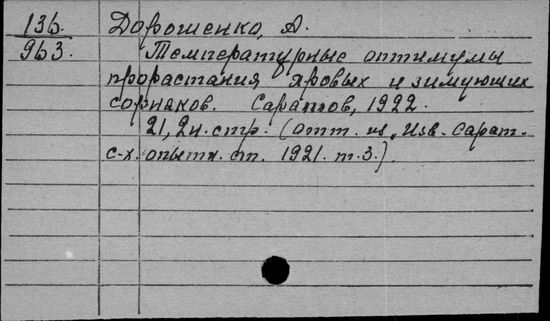 136.
963.
Дорошенко, А.
Температурные оптимумы
прорастания яровых и зимующих
сорняков. Саратов, 1922.
21, 2н. стр. (отт. из „Изв. Сарат.
с-х. опытн. ст. 1921. т. 3.).